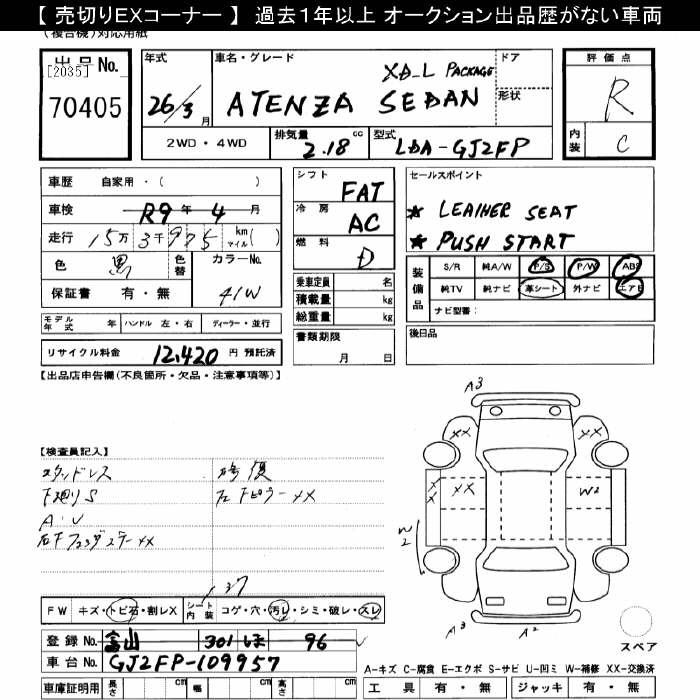 【 売切りEXコーナー 】 過去1年以上 オークション出品歴がない車両
(複合機)対応用紙
出品No.
[2035]
70405
年式
26/3月
車名・グレード
XD_L PACKAGE
ATENZA SEDAN
ドア
形状
2WD・4WD
排気量
2.18 cc
型式
LDA-GJ2FP
評価点
R
内装
C
車歴 自家用・( )
車検 R9年 4月
走行 15万3千975 km マイル( )
色 黒
色替
カラーNo.
41W
保証書 有・無
モデル年式 年 ハンドル 左・右 ディーラー・並行
リサイクル料金 12,420 円 預託済
シフト
FAT
冷房
AC
燃料
D
乗車定員 名
積載量 kg
総重量 kg
書類期限
月 日
セールスポイント
★ LEATHER SEAT
★ PUSH START
装備品
S/R 純A/W P/S P/W ABS
純TV 純ナビ 革シート 外ナビ エアB
ナビ型番:
後日品
【出品店申告欄(不良箇所・欠品・注意事項等)】
【検査員記入】
スタッドレス
下廻りS
A・U
修復
A3
XX
XX
XX
XX
W2
W2
A3
A2
スペア
37
FW キズ・トビ石・割レX
シート内装 コゲ・穴・汚レ・シミ・破レ・スレ
登録No. 富山 301 ほ 96
車台No. GJ2FP-109957
車庫証明用 長さ cm 幅 cm 高さ cm
A-キズ C-腐食 E-エクボ S-サビ U-凹ミ W-補修 XX-交換済
工具 有・無 ジャッキ 有・無